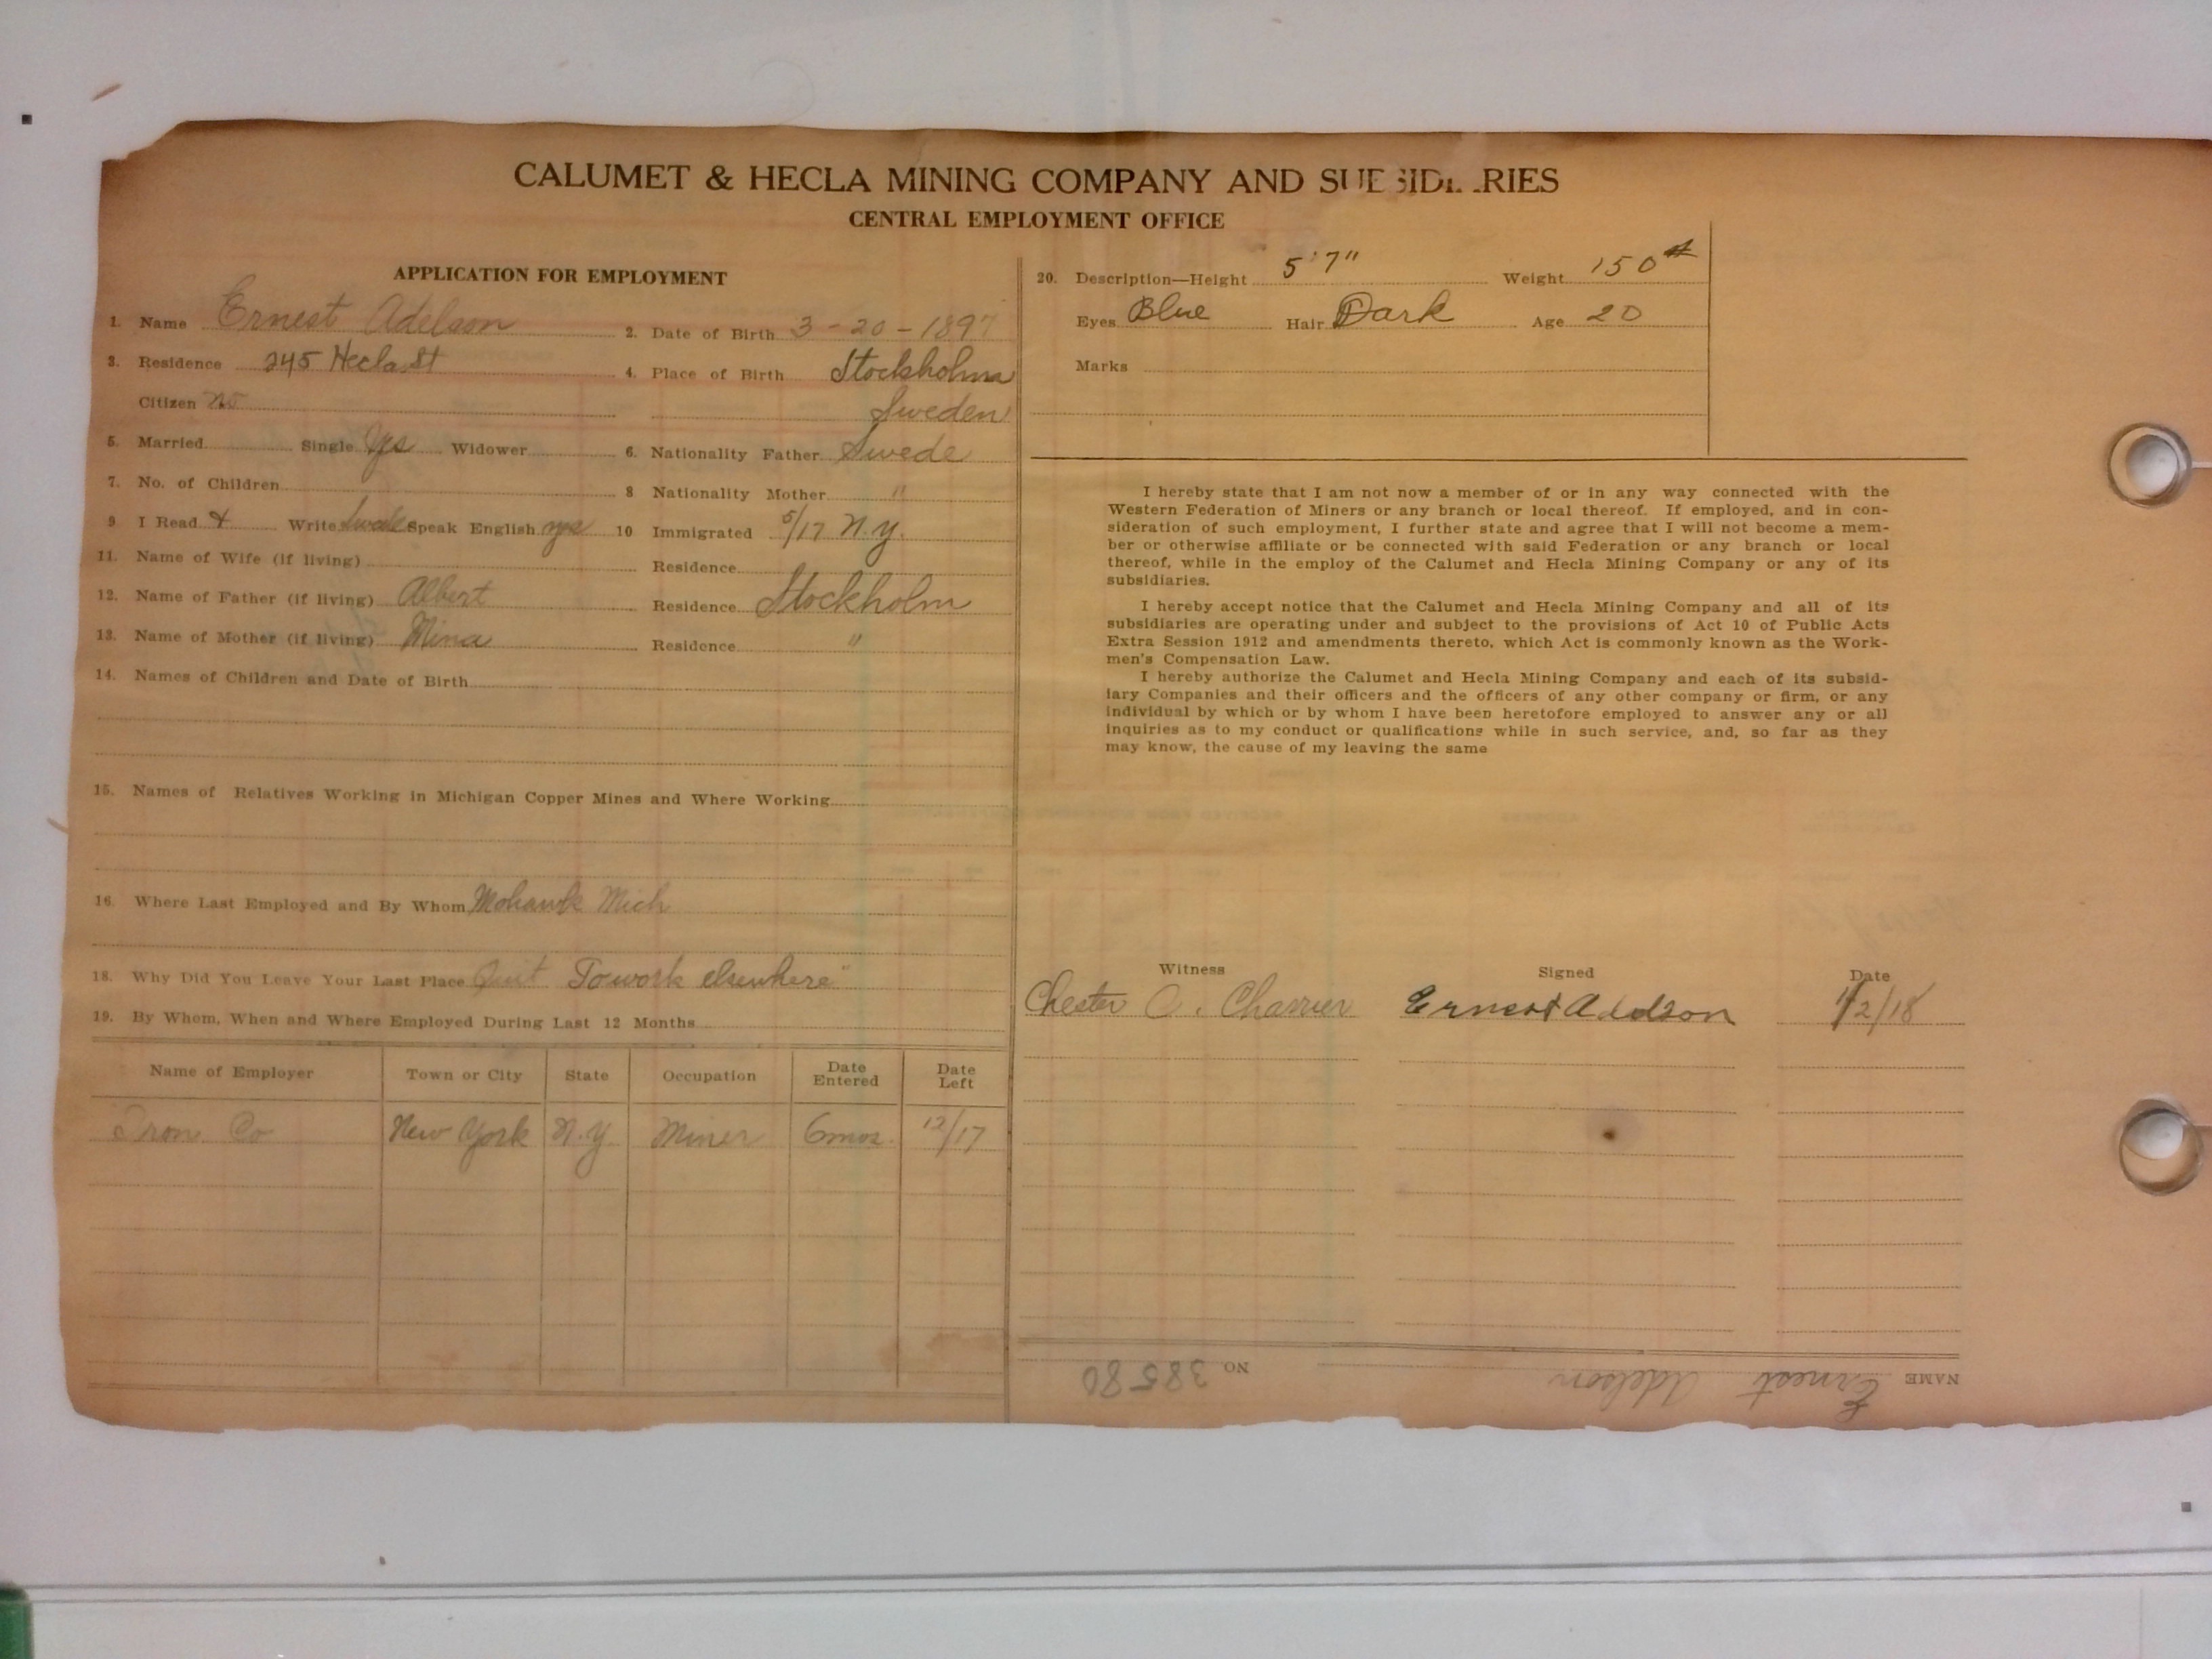 CALUMET & HECLA MINING COMPANY AND SUBSIDIARIES
CENTRAL EMPLOYMENT OFFICE
APPLICATION FOR EMPLOYMENT
1. Name Ernest Adelson 2. Date of Birth 3-20-1897
3. Residence 245 Hecla St 4. Place of Birth Stockholm
Citizen No Sweden
5. Married Single Yes Widower 6. Nationality Father Swede
7. No. of Children 8 Nationality Mother "
9 I Read & Write Swede Speak English yes 10 Immigrated 5/17 N.Y.
11. Name of Wife (if living) Residence
12. Name of Father (if living) Albert Residence Stockholm
13. Name of Mother (if living) Mina Residence "
14. Names of Children and Date of Birth
15. Names of Relatives Working in Michigan Copper Mines and Where Working
16. Where Last Employed and By Whom Mohawk Mich
18. Why Did You Leave Your Last Place Quit To work elsewhere"
19. By Whom, When and Where Employed During Last 12 Months
Name of Employer Town or City State Occupation Date Entered Date Left
Iron Co New York N.Y. Miner 6mos. 12/17
20. Description—Height 5'7" Weight 150#
Eyes Blue Hair Dark Age 20
Marks
I hereby state that I am not now a member of or in any way connected with the
Western Federation of Miners or any branch or local thereof. If employed, and in con-
sideration of such employment, I further state and agree that I will not become a mem-
ber or otherwise affiliate or be connected with said Federation or any branch or local
thereof, while in the employ of the Calumet and Hecla Mining Company or any of its
subsidiaries.
I hereby accept notice that the Calumet and Hecla Mining Company and all of its
subsidiaries are operating under and subject to the provisions of Act 10 of Public Acts
Extra Session 1912 and amendments thereto, which Act is commonly known as the Work-
men's Compensation Law.
I hereby authorize the Calumet and Hecla Mining Company and each of its subsid-
iary Companies and their officers and the officers of any other company or firm, or any
individual by which or by whom I have been heretofore employed to answer any or all
inquiries as to my conduct or qualifications while in such service, and, so far as they
may know, the cause of my leaving the same
Witness Signed Date
Chester Ernest Adelson 1/2/18
NAME Ernest Adelson NO 38580